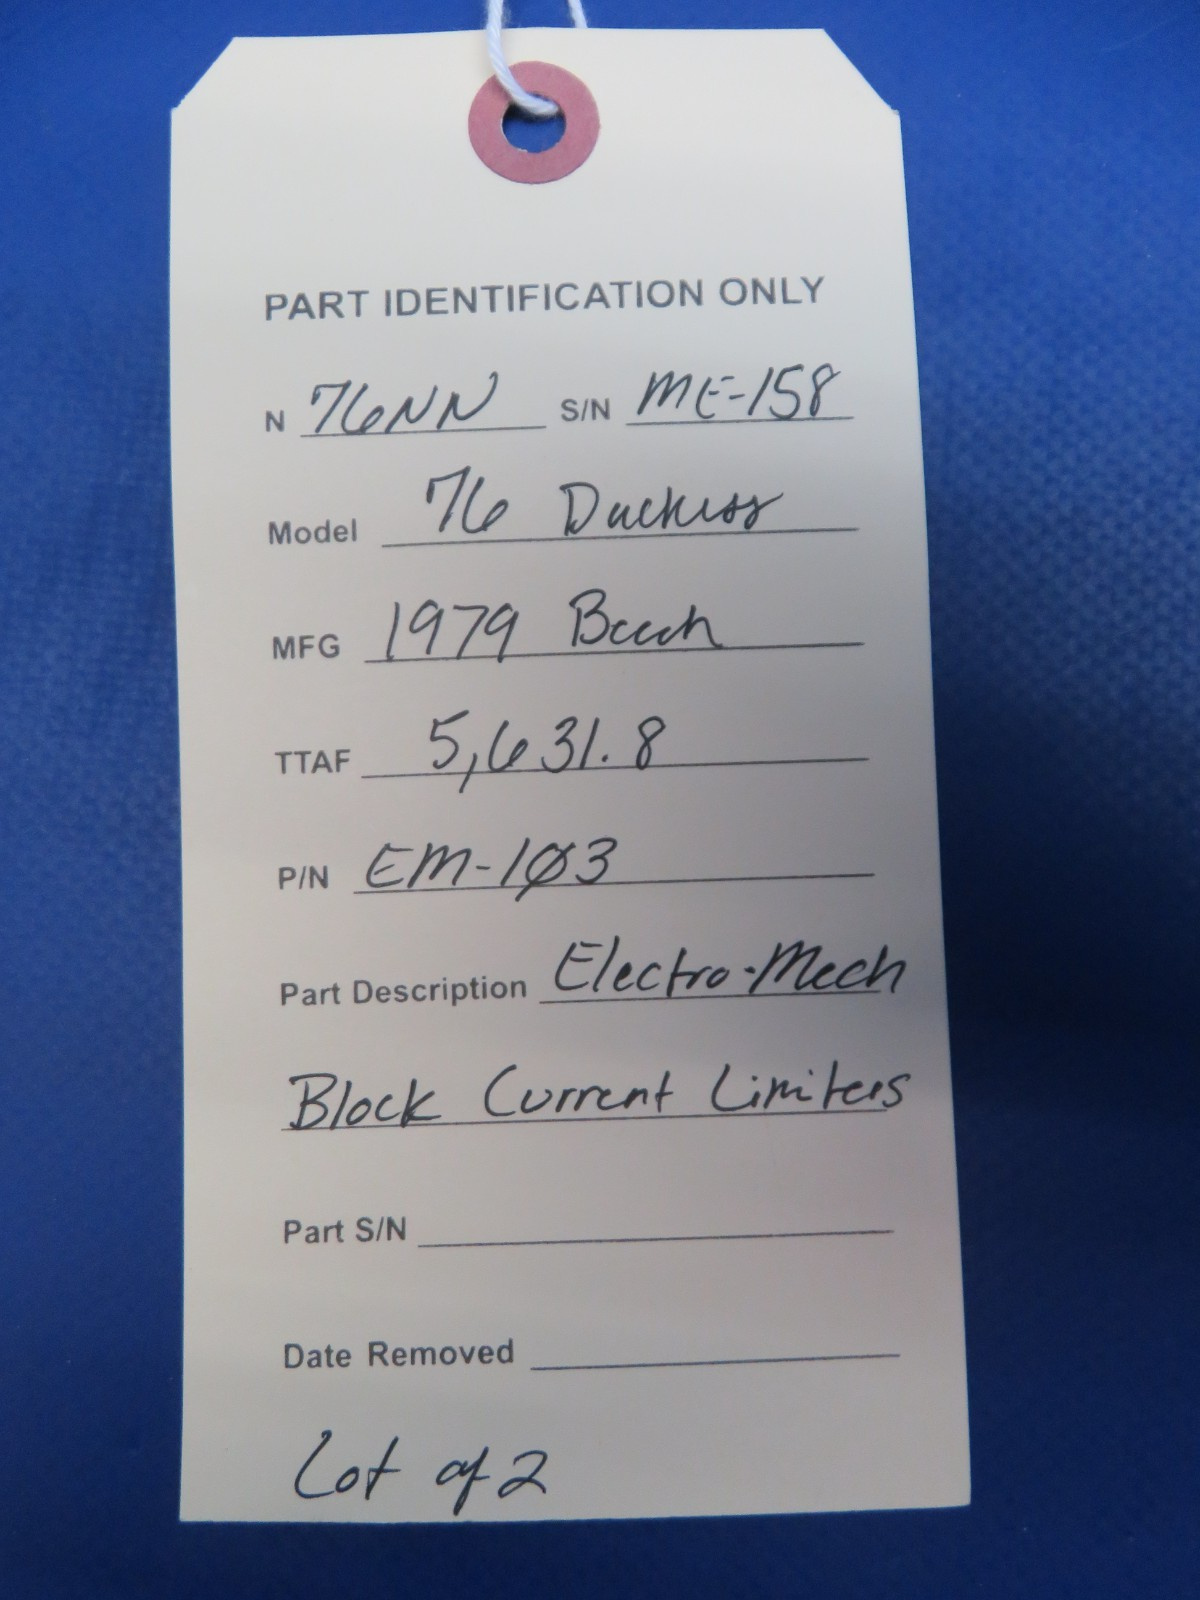 PART IDENTIFICATION ONLY
N 76NN S/N ME-158
Model 76 Duchess
MFG 1979 Beech
TTAF 5,631.8
P/N EM-1Ø3
Part Description Electro-Mech
Block Current Limiters
Part S/N
Date Removed
Lot of 2